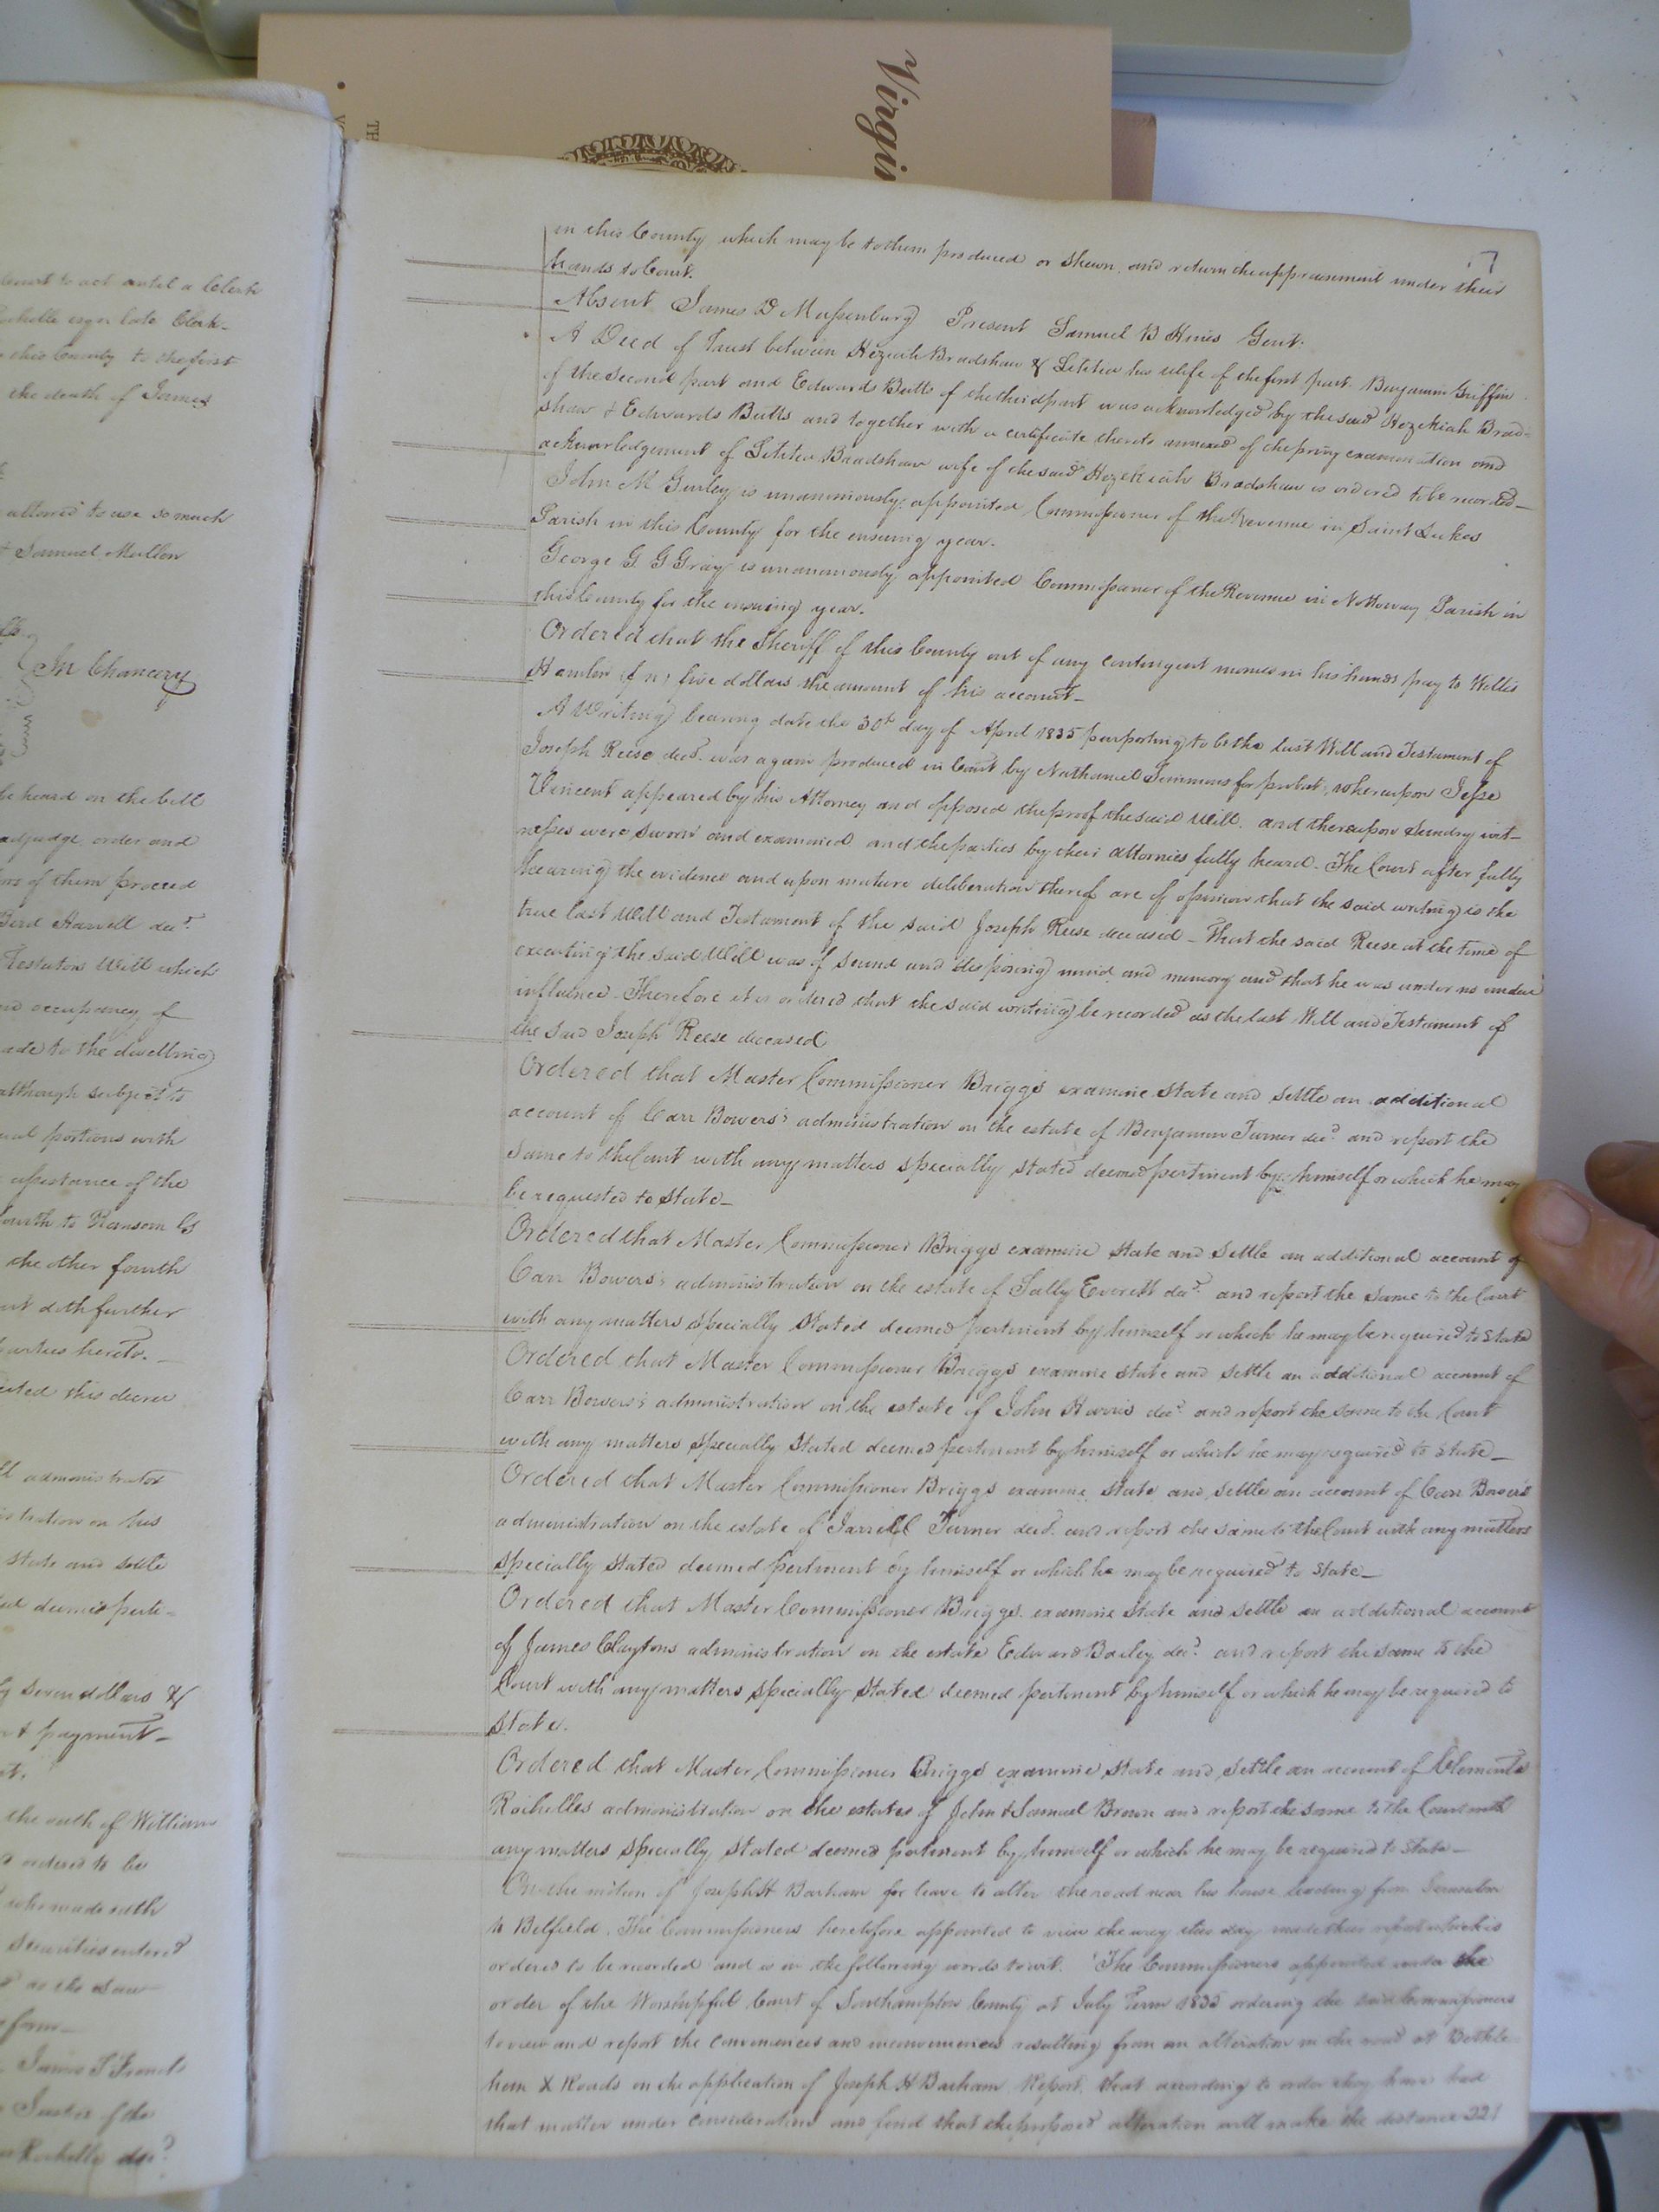 Virgin
TH
7
in this County which may be to them produced or shewn, and return the appraisement under their
hands to Court.
Absent James D Massenburg Present Samuel B Hines Gent.
A Deed of Trust between Hezekiah Bradshaw & Letitia his wife of the first part Benjamin Griffin
of the second part and Edwards Butts of the third part was acknowledged by the said Hezekiah Brad=
shaw & Edwards Butts and together with a certificate thereto annexed of the privy examination and
acknowledgement of Letitia Bradshaw wife of the said Hezekiah Bradshaw is ordered to be recorded—
John M Gurley is unanimously appointed Commissioner of the Revenue in Saint Lukes
Parish in this County for the ensuing year.
George G G Gray is unanimously appointed Commissioner of the Revenue in Nottoway Parish in
this County for the ensuing year.
Ordered that the Sheriff of this County out of any contingent monies in his hands pay to Willis
Hamlin (f n) five dollars the amount of his account—
A Writing bearing date the 30th day of April 1835 purporting to be the last Will and Testament of
Joseph Reese decd. was again produced in Court by Nathaniel Simmons for probat, whereupon Jesse
Vincent appeared by his Attorney and opposed the proof the said Will. and thereupon sundry wit-
nesses were sworn and examined and the parties by their attornies fully heard. The Court after fully
hearing the evidence and upon mature deliberation thereof are of opinion that the said writing is the
true last Will and Testament of the said Joseph Reese deceased – That the said Reese at the time of
executing the said Will was of sound and disposing mind and memory and that he was under no undue
influence. Therefore it is ordered that the said writing be recorded as the last Will and Testament of
the said Joseph Reese deceased
Ordered that Master Commissioner Briggs examine state and settle an additional
account of Carr Bowers's administration on the estate of Benjamin Turner decd. and report the
same to the Court with any matters specially stated deemed pertinent by himself or which he may
be requested to state—
Ordered that Master Commissioner Briggs examine state and settle an additional account of
Carr Bowers's administration on the estate of Sally Everett decd. and report the same to the Court
with any matters specially stated deemed pertinent by himself or which he may be required to state
Ordered that Master Commissioner Briggs examine state and settle an additional account of
Carr Bowers's administration on the estate of John Harris decd. and report the same to the Court
with any matters specially stated deemed pertinent by himself or which he may required to state—
Ordered that Master Commissioner Briggs examine state and settle an account of Carr Bowers
administration on the estate of Jarrell Turner decd. and report the same to the Court with any matters
specially stated deemed pertinent by himself or which he may be required to state—
Ordered that Master Commissioner Briggs examine state and settle an additional account
of James Claytons administration on the estate Edward Bailey decd. and report the same to the
Court with any matters specially stated deemed pertinent by himself or which he may be required to
state.
Ordered that Master Commissioner Briggs examine state and settle an account of Clements
Rochelles administration on the estates of John & Samuel Brown and report the same to the Court with
any matters specially stated deemed pertinent by himself or which he may be required to state—
On the motion of Joseph H Barham for leave to alter the road near his house leading from Jerusalem
to Belfield. The Commissioners heretofore appointed to view the way this day made their report which is
ordered to be recorded and is in the following words towit. "The Commissioners appointed under the
order of the Worshipful Court of Southampton County at July Term 1835 ordering the said Commissioners
to view and report the conveniences and inconveniences resulting from an alteration in the road at Bethle-
hem X Roads on the application of Joseph H Barham Report, that according to order they have had
that matter under consideration and find that the proposed alteration will make the distance 221
Court to act until a Clerk
Rochelle esqr late Clerk-
this County to the first
the death of James
allowed to use so much
& Samuel Mullen
In Chancery
be heard on the bill
adjudge, order and
of them proceed
Harvell decd.
Testators Will which
occupancy of
to the dwelling
although subject to
portions with
assistance of the
fourth to Ransom
the other fourth
doth further
parties hereto.—
this decree
administrator
on his
state and settle
deemed perti=
seven dollars &
payment—
the oath of William
ordered to be
who made oath
securities entered
as the Law
form—
James S French
Justice of the
Rochelle decd.